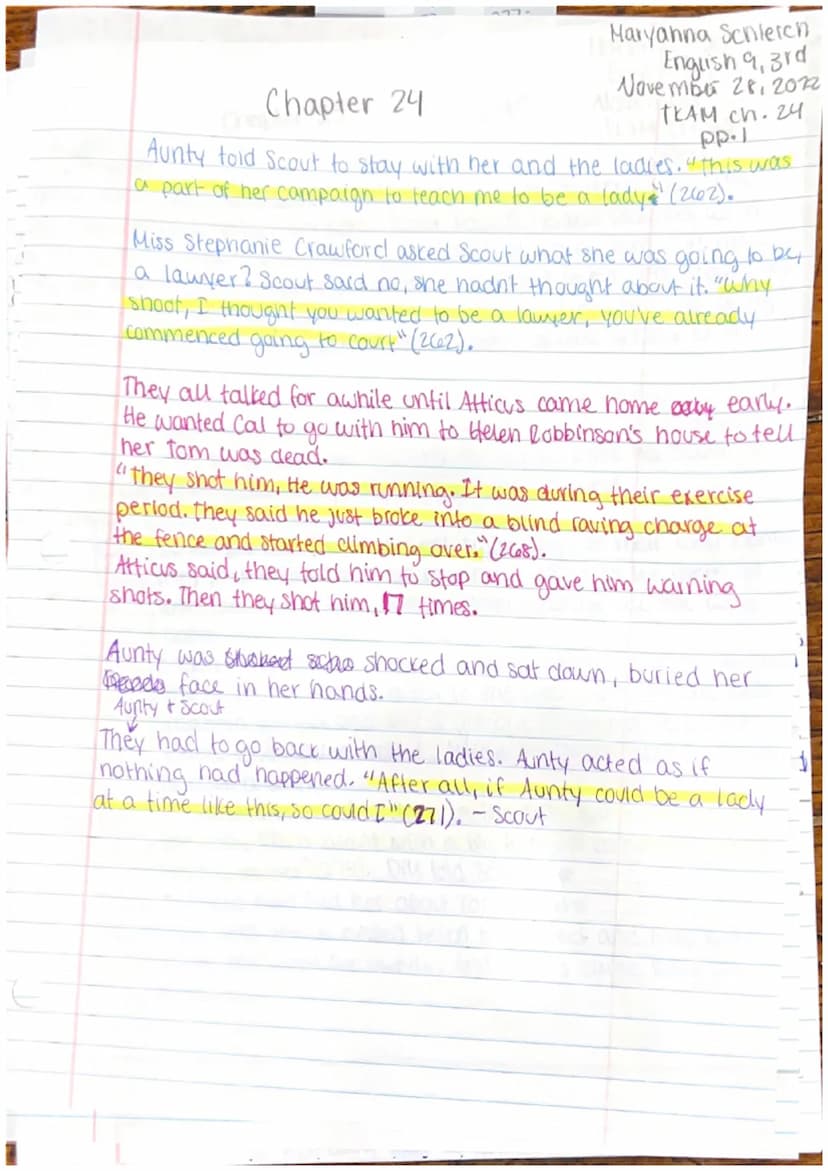 Maryanna Schlerch
English 9, 3rd
November 28, 2022
TKAM ch. 24
pp. 1
Chapter 24
Aunty told Scout to stay with her and the ladies. "This was
a part of her campaign to teach me to be a lady" (262).
Miss Stephanie Crawford asked Scout what she was going to be,
a lawyer? Scout said no, she hadnt thought about it. "Why
shoot, I thought you wanted to be a lawyer, you've already
commenced going to court" (262).
They all talked for awhile until Atticus came home early.
He wanted Cal to go with him to Helen Robbinson's house to tell
her Tom was dead.
"They shot him, He was running. It was during their exercise
period. they said he just broke into a blind raving charge at
the fence and started climbing over." (268).
Atticus said, they told him to stop and gave him warning
shots. Then they shot him, 17 times.
Aunty was shocked and sat down, buried her
face in her hands.
Aunty + Scout
They had to go back with the ladies. Aunty acted as if
nothing had happened. "After all, if Aunty could be a lady
at a time like this, so could I" (271). - Scout